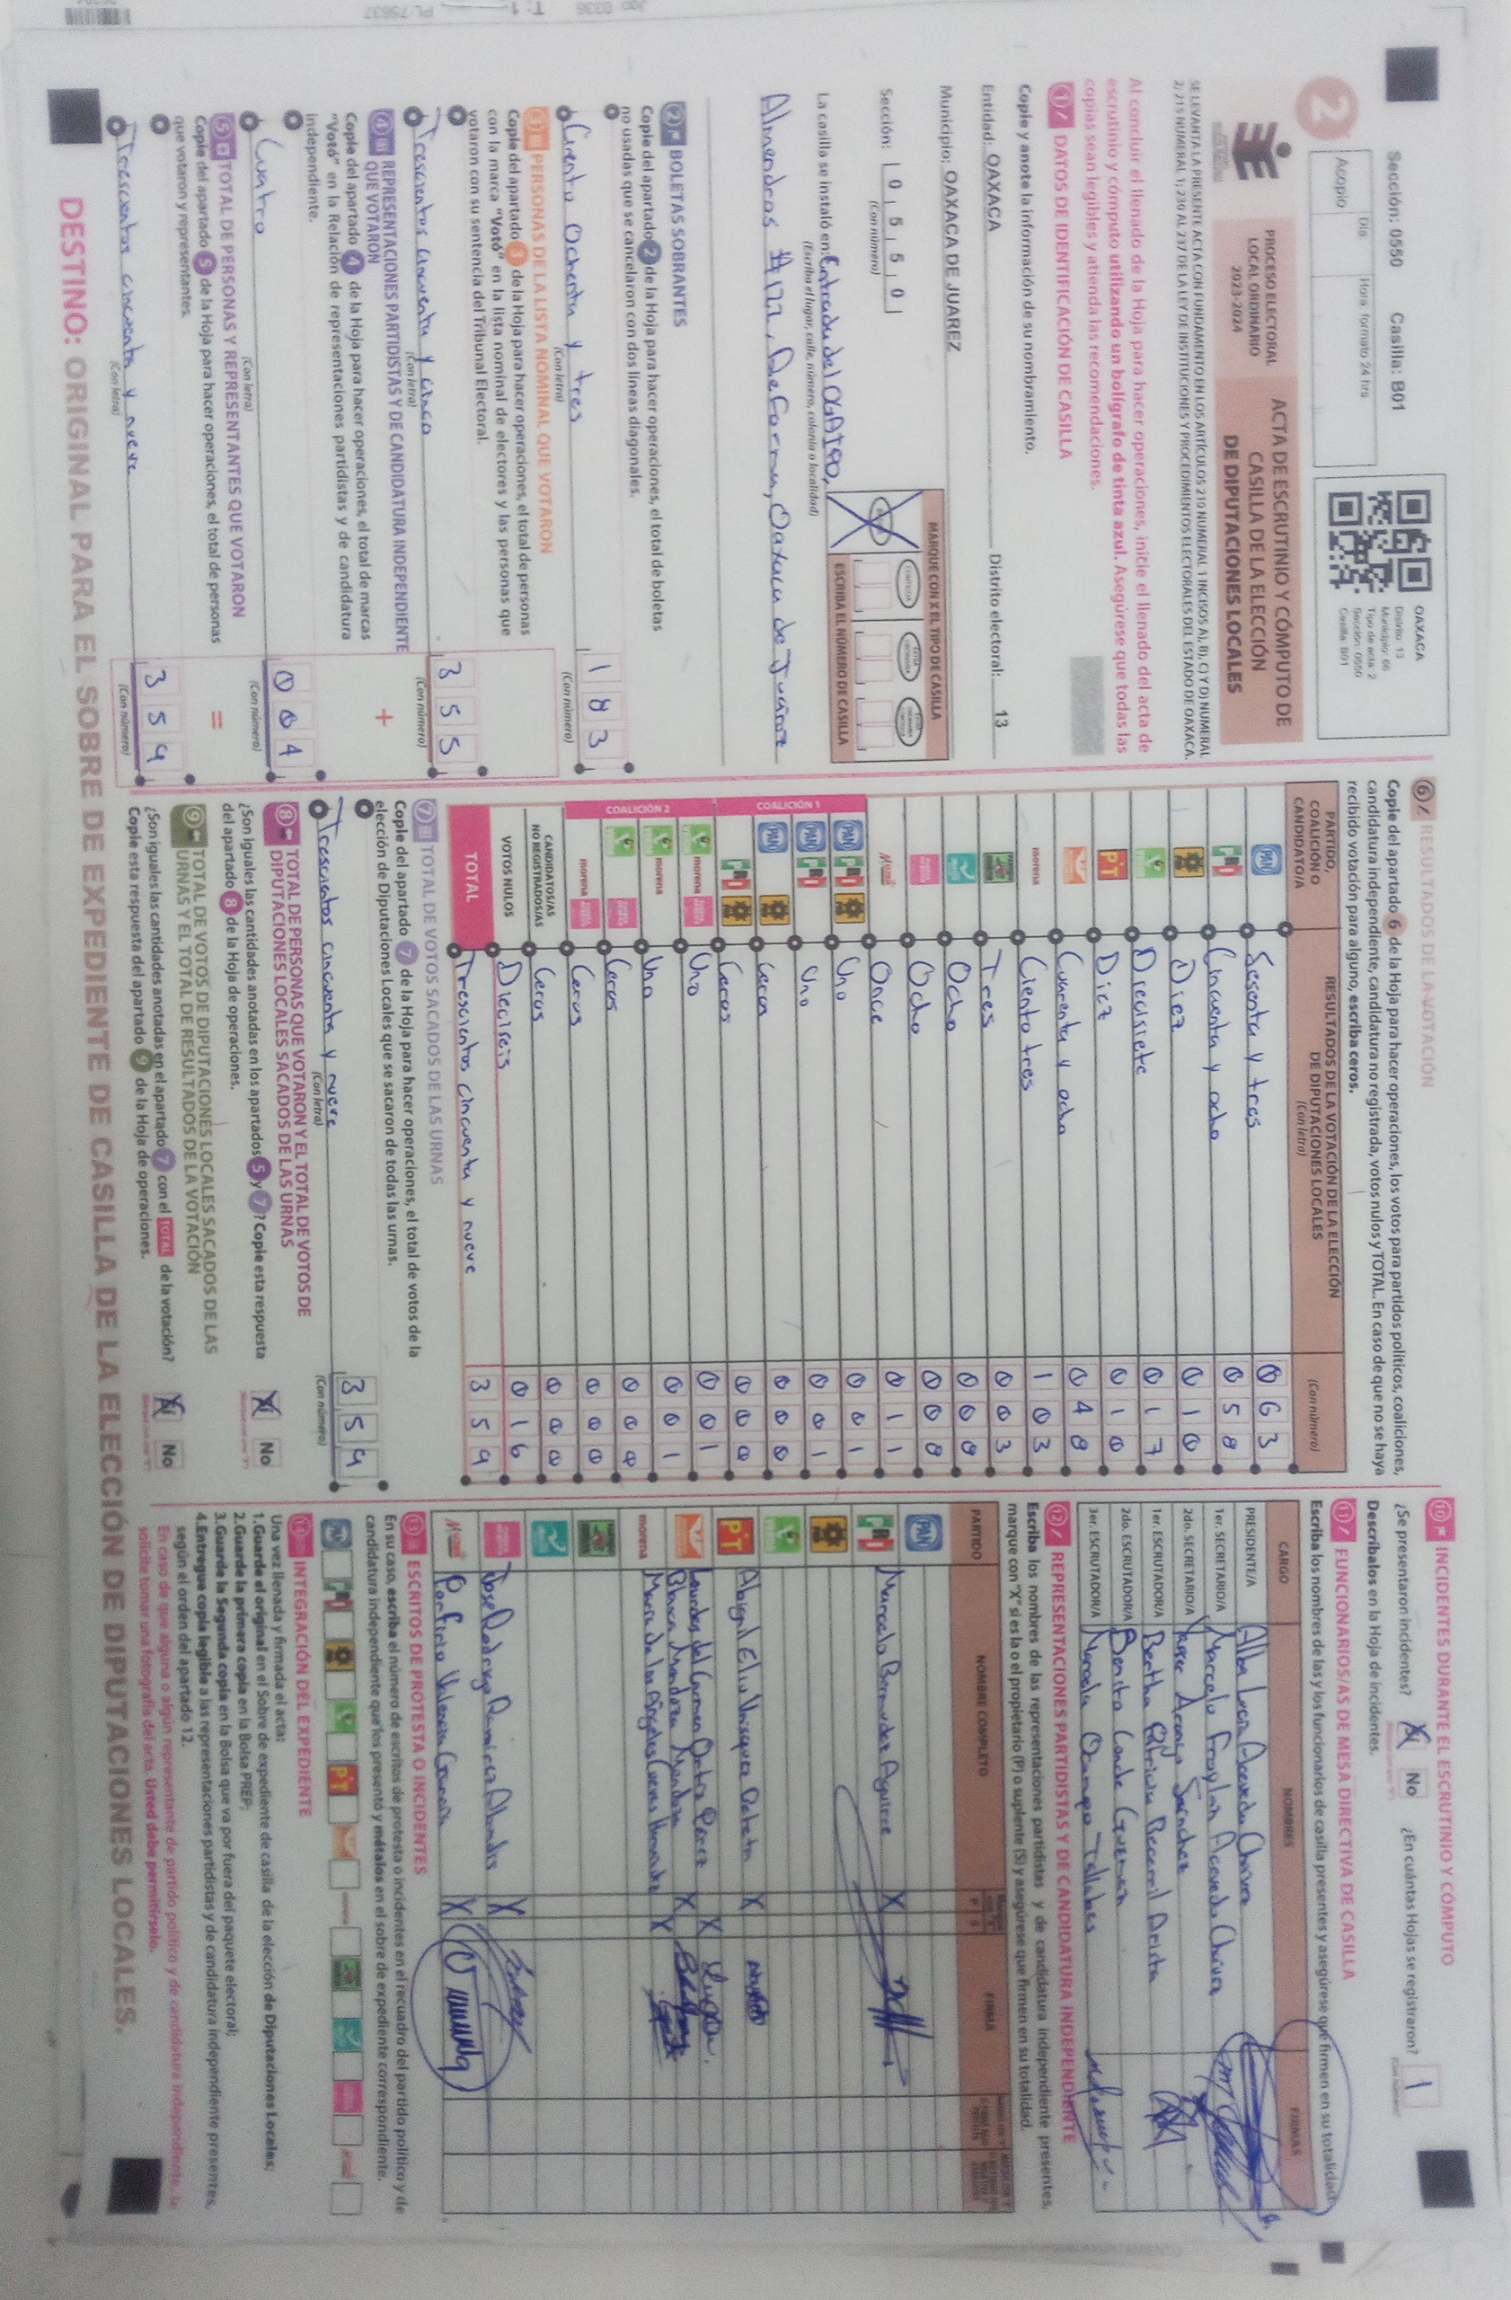 Sección: 0550 Casilla: B01
2
Acopio
Día
Hora formato 24 hrs
OAXACA
Distrito: 13
Municipio: 66
Tipo de acta: 2
Sección: 0550
Casilla: B01
PROCESO ELECTORAL
LOCAL ORDINARIO
2023-2024
ACTA DE ESCRUTINIO Y CÓMPUTO DE
CASILLA DE LA ELECCIÓN
DE DIPUTACIONES LOCALES
SE LEVANTA LA PRESENTE ACTA CON FUNDAMENTO EN LOS ARTÍCULOS 210 NUMERAL 1 INCISOS A), B), C) Y D) NUMERAL
2; 215 NUMERAL 1; 230 AL 237 DE LA LEY DE INSTITUCIONES Y PROCEDIMIENTOS ELECTORALES DEL ESTADO DE OAXACA.
Al concluir el llenado de la Hoja para hacer operaciones, inicie el llenado del acta de
escrutinio y cómputo utilizando un bolígrafo de tinta azul. Asegúrese que todas las
copias sean legibles y atienda las recomendaciones.
1 DATOS DE IDENTIFICACIÓN DE CASILLA
Copie y anote la información de su nombramiento.
Entidad: OAXACA Distrito electoral: 13
Municipio: OAXACA DE JUAREZ
Sección: 0 5 5 0
(Con número)
MARQUE CON X EL TIPO DE CASILLA
ESCRIBA EL NÚMERO DE CASILLA
La casilla se instaló en:
(Escriba el lugar, calle, número, colonia o localidad)
Almendros #122, Reforma, Oaxaca de Juárez
2 BOLETAS SOBRANTES
Copie del apartado 2 de la Hoja para hacer operaciones, el total de boletas
no usadas que se cancelaron con dos líneas diagonales.
Ciento Ochenta y tres 1 8 3
(Con letra) (Con número)
3 PERSONAS DE LA LISTA NOMINAL QUE VOTARON
Copie del apartado 3 de la Hoja para hacer operaciones, el total de personas
con la marca "Votó" en la lista nominal de electores y las personas que
votaron con su sentencia del Tribunal Electoral.
Trescientos cincuenta y cinco 3 5 5
(Con letra) (Con número)
4 REPRESENTACIONES PARTIDISTAS Y DE CANDIDATURA INDEPENDIENTE
QUE VOTARON
Copie del apartado 4 de la Hoja para hacer operaciones, el total de marcas
"Votó" en la Relación de representaciones partidistas y de candidatura
independiente.
+
Cuatro 0 0 4
(Con letra) (Con número)
5 TOTAL DE PERSONAS Y REPRESENTANTES QUE VOTARON
Copie del apartado 5 de la Hoja para hacer operaciones, el total de personas
que votaron y representantes.
=
Trescientos cincuenta y nueve 3 5 9
(Con letra) (Con número)
6 RESULTADOS DE LA VOTACIÓN
Copie del apartado 6 de la Hoja para hacer operaciones, los votos para partidos políticos, coaliciones,
candidatura independiente, candidatura no registrada, votos nulos y TOTAL. En caso de que no se haya
recibido votación para alguno, escriba ceros.
PARTIDO,
COALICIÓN O
CANDIDATO/A
RESULTADOS DE LA VOTACIÓN DE LA ELECCIÓN
DE DIPUTACIONES LOCALES
(Con letra) (Con número)
PAN Sesenta y tres 0 6 3
PRI Cincuenta y ocho 0 5 8
Diez 0 1 0
Diecisiete 0 1 7
PT Diez 0 1 0
Cuarenta y ocho 0 4 8
morena Ciento tres 1 0 3
Tres 0 0 3
Ocho 0 0 8
Ocho 0 0 8
Once 0 1 1
COALICIÓN 1
PAN PRI Uno 0 0 1
PAN PRI Uno 0 0 1
PAN Ceros 0 0 0
PRI Ceros 0 0 0
COALICIÓN 2
morena Uno 0 0 1
morena Uno 0 0 1
Ceros 0 0 0
morena Ceros 0 0 0
CANDIDATOS/AS
NO REGISTRADOS/AS Ceros 0 0 0
VOTOS NULOS Dieciseis 0 1 6
TOTAL Trescientos cincuenta y nueve 3 5 9
7 TOTAL DE VOTOS SACADOS DE LAS URNAS
Copie del apartado 7 de la Hoja para hacer operaciones, el total de votos de la
elección de Diputaciones Locales que se sacaron de todas las urnas.
Trescientos cincuenta y nueve 3 5 9
(Con letra) (Con número)
8 TOTAL DE PERSONAS QUE VOTARON Y EL TOTAL DE VOTOS DE
DIPUTACIONES LOCALES SACADOS DE LAS URNAS
¿Son iguales las cantidades anotadas en los apartados 5 y 7? Copie esta respuesta
del apartado 8 de la Hoja de operaciones.
X No
9 TOTAL DE VOTOS DE DIPUTACIONES LOCALES SACADOS DE LAS
URNAS Y EL TOTAL DE RESULTADOS DE LA VOTACIÓN
¿Son iguales las cantidades anotadas en el apartado 7 con el TOTAL de la votación?
Copie esta respuesta del apartado 9 de la Hoja de operaciones.
X No
10 INCIDENTES DURANTE EL ESCRUTINIO Y CÓMPUTO
¿Se presentaron incidentes? X No ¿En cuántas Hojas se registraron? 1
Descríbalos en la Hoja de incidentes.
11 FUNCIONARIOS/AS DE MESA DIRECTIVA DE CASILLA
Escriba los nombres de las y los funcionarios de casilla presentes y asegúrese que firmen en su totalidad.
CARGO NOMBRES FIRMAS
PRESIDENTE/A Alba Lucia Acevedo
1er. SECRETARIO/A Marcela Froylan Acevedo
2do. SECRETARIO/A Sánchez
1er. ESCRUTADOR/A Bertha Patricia
2do. ESCRUTADOR/A Benito Conde Guzman
3er. ESCRUTADOR/A Ocampo
12 REPRESENTACIONES PARTIDISTAS Y DE CANDIDATURA INDEPENDIENTE
Escriba los nombres de las representaciones partidistas y de candidatura independiente presentes,
marque con "X" si es la o el propietario (P) o suplente (S) y asegúrese que firmen en su totalidad.
PARTIDO NOMBRE COMPLETO P S FIRMA
PAN
PRI Marcela Bermudez Aguirre X
PT Abigail X
Lourdes del Carmen Ortiz Perez X
Blanca Mendoza Mendoza X
morena Maria de los Angeles X
Jose Rodrigo Ramirez X
Porfirio Valencia X
13 ESCRITOS DE PROTESTA O INCIDENTES
En su caso, escriba el número de escritos de protesta o incidentes en el recuadro del partido político y de
candidatura independiente que los presentó y métalos en el sobre de expediente correspondiente.
14 INTEGRACIÓN DEL EXPEDIENTE
Una vez llenada y firmada el acta:
1.Guarde el original en el Sobre de expediente de casilla de la elección de Diputaciones Locales;
2.Guarde la primera copia en la Bolsa PREP;
3.Guarde la Segunda copia en la Bolsa que va por fuera del paquete electoral;
4.Entregue copia legible a las representaciones partidistas y de candidatura independiente presentes,
según el orden del apartado 12.
En caso de que alguna o algún representante de partido político y de candidatura independiente, le
solicite tomar una fotografía del acta. Usted debe permitírselo.
DESTINO: ORIGINAL PARA EL SOBRE DE EXPEDIENTE DE CASILLA DE LA ELECCIÓN DE DIPUTACIONES LOCALES.